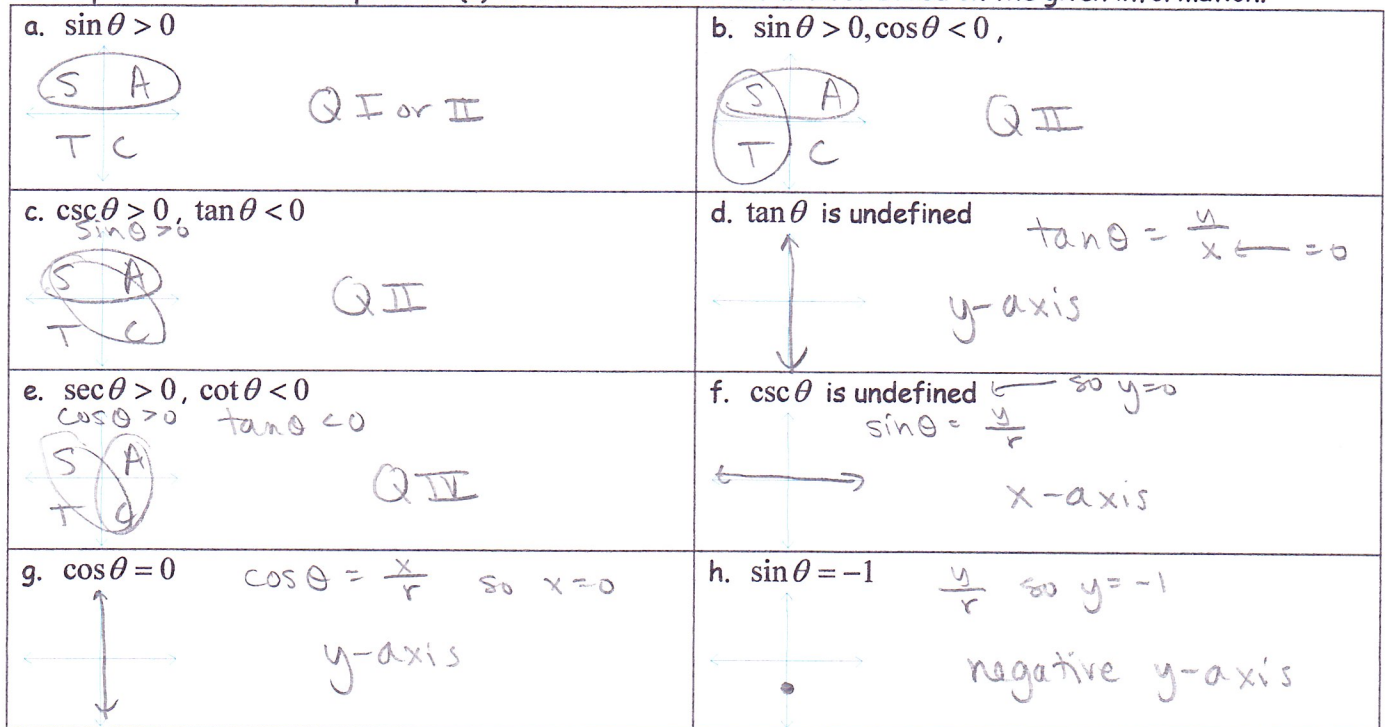 a. sin θ > 0
S A
T C
Q I or II
b. sin θ > 0, cos θ < 0,
S A
T C
Q II
c. csc θ > 0, tan θ < 0
sin θ > 0
S A
T C
Q II
d. tan θ is undefined
tan θ = y/x ← = 0
y-axis
e. sec θ > 0, cot θ < 0
cos θ > 0 tan θ < 0
S A
T C
Q IV
f. csc θ is undefined ← so y=0
sin θ = y/r
x-axis
g. cos θ = 0
cos θ = x/r so x=0
y-axis
h. sin θ = -1
y/r so y = -1
negative y-axis